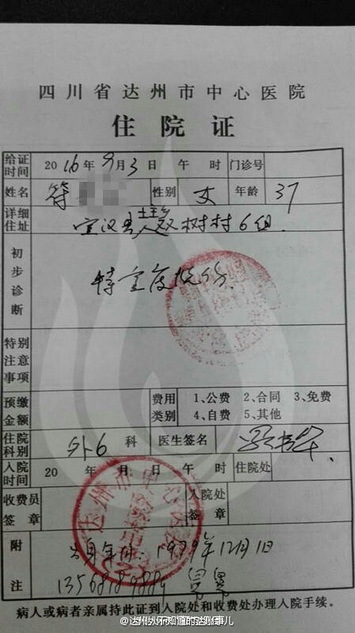 四川省达州市中心医院
住院证
给证时间 2016年9月3日 午 时 门诊号
姓名 符 性别 女 年龄 37
详细住址 宣汉县 树村6组
初步诊断 特重度烧伤
特别注意事项
预缴金额 费用类别 1、公费 2、合同 3、免费 4、自费 5、其他
住院科别 外6 科 医生签名
入院时间 20 年 月 日 午 时 住院处
收费员签章 入院处签章
达州市中心医院
附注 出身年份:1979年12月1日
病人或病者亲属持此证到入院处和收费处办理入院手续。